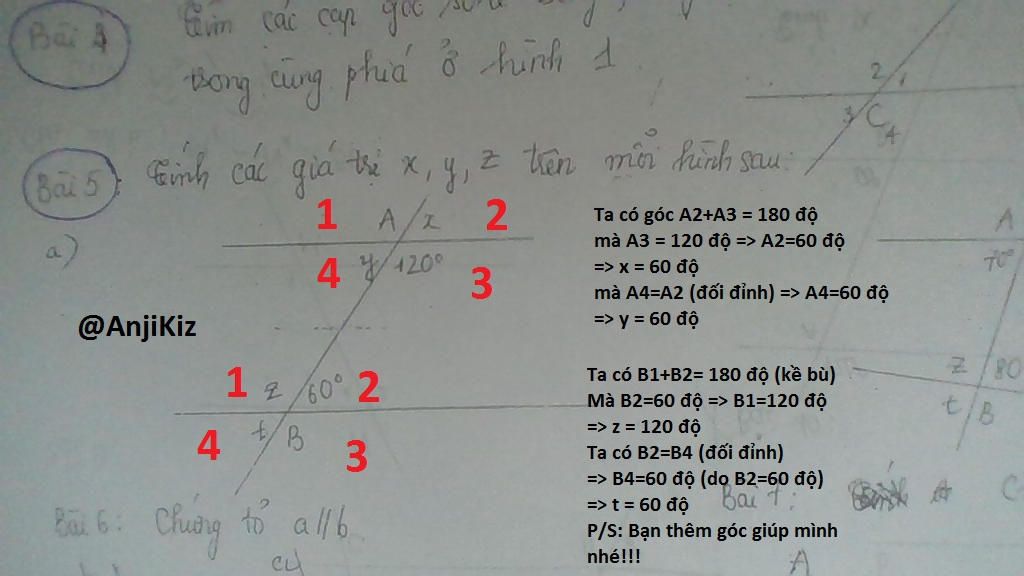 Bài 4
Tìm các cặp góc
trong cùng phía ở hình 1
2 1
3 C 4
Bài 5: Tính các giá trị x, y, z trên mỗi hình sau:
a)
1 A x 2
4 y 120° 3
@AnjiKiz
1 z 60° 2
4 t B 3
Ta có góc A2+A3 = 180 độ
mà A3 = 120 độ => A2=60 độ
=> x = 60 độ
mà A4=A2 (đối đỉnh) => A4=60 độ
=> y = 60 độ
Ta có B1+B2= 180 độ (kề bù)
Mà B2=60 độ => B1=120 độ
=> z = 120 độ
Ta có B2=B4 (đối đỉnh)
=> B4=60 độ (do B2=60 độ)
=> t = 60 độ
P/S: Bạn thêm góc giúp mình
nhé!!!
A
70°
z 80
t B
Bài 6: Chứng tỏ a//b
Bài 7:
C
A